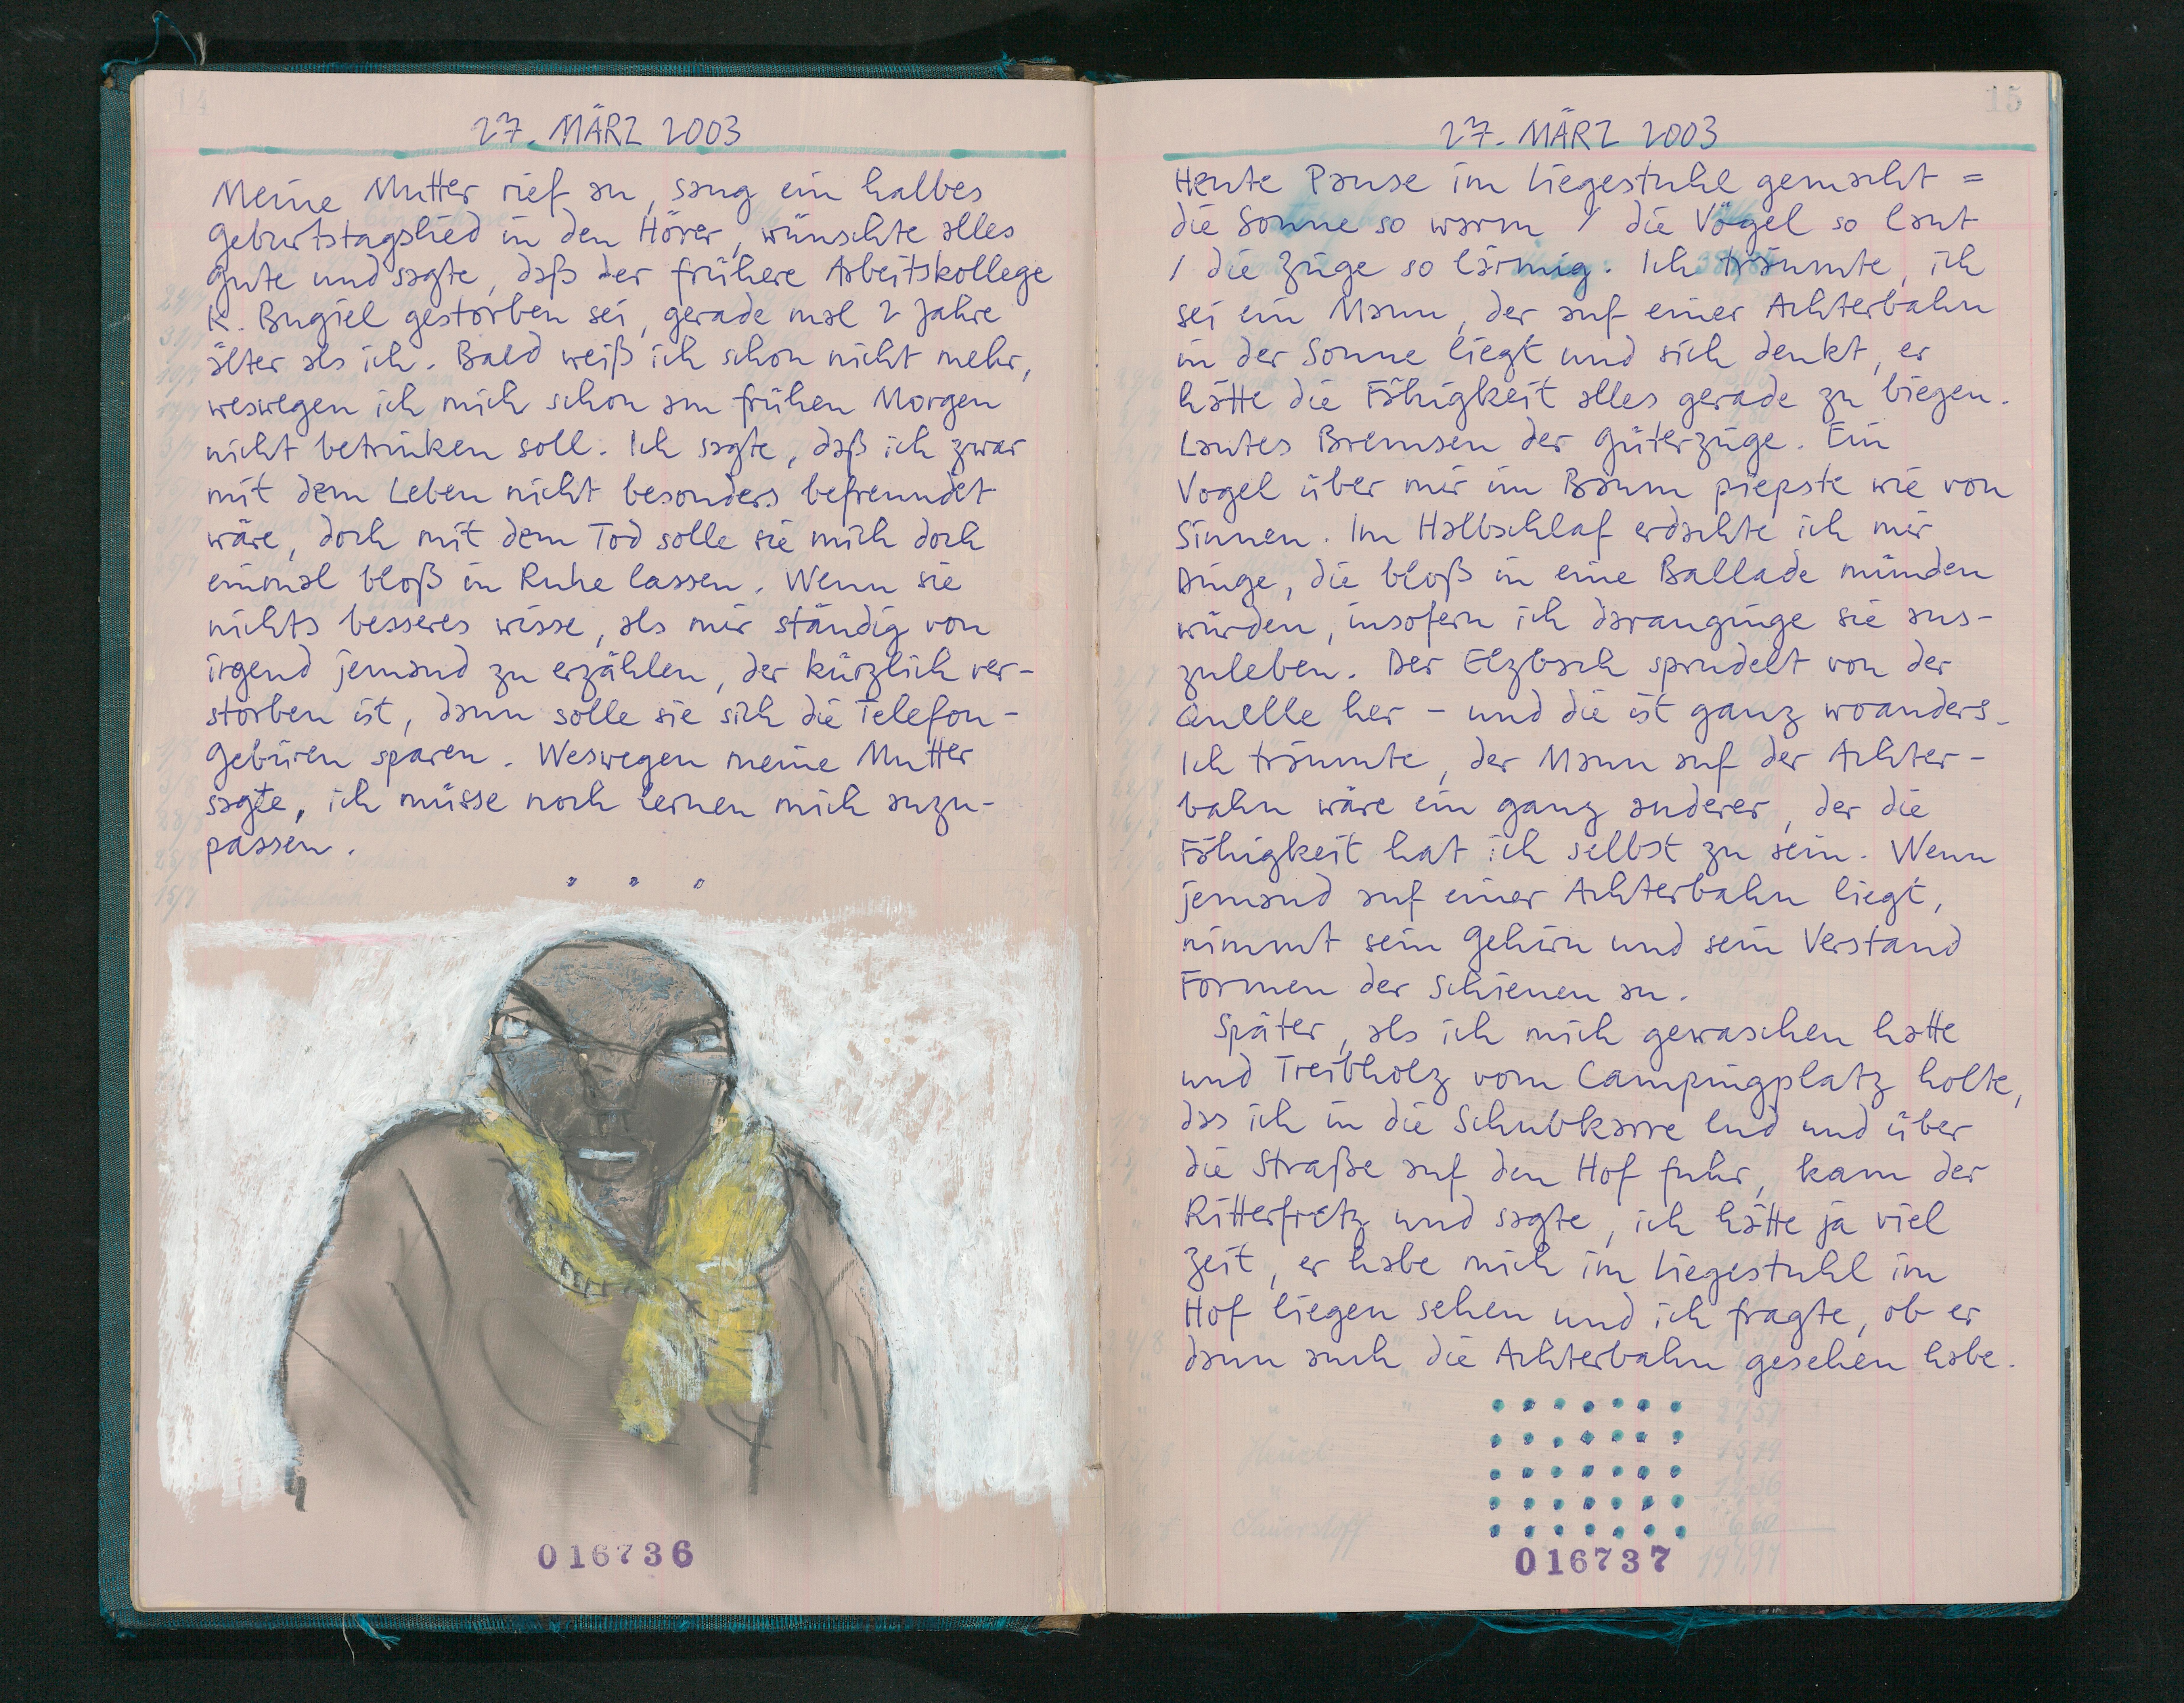 14
27. MÄRZ 2003
Meine Mutter rief an, sang ein halbes
Geburtstagslied in den Hörer, wünschte alles
Gute und sagte, daß der frühere Arbeitskollege
K. Bugiel gestorben sei, gerade mal 2 Jahre
älter als ich. Bald weiß ich schon nicht mehr,
weswegen ich mich schon am frühen Morgen
nicht betrinken soll. Ich sagte, daß ich zwar
mit dem Leben nicht besonders befreundet
wäre, doch mit dem Tod solle sie mich doch
einmal bloß in Ruhe lassen. Wenn sie
nichts besseres wisse, als mir ständig von
irgend jemand zu erzählen, der kürzlich ver-
storben ist, dann solle sie sich die Telefon-
Gebüren sparen. Weswegen meine Mutter
sagte, ich müsse noch lernen mich anzu-
passen.
016736
15
27. MÄRZ 2003
Heute Pause im Liegestuhl gemacht =
die Sonne so warm / die Vögel so laut
/ die Züge so lärmig. Ich träumte, ich
sei ein Mann, der auf einer Achterbahn
in der Sonne liegt und sich denkt, er
hätte die Fähigkeit alles gerade zu biegen.
Lautes Bremsen der Güterzüge. Ein
Vogel über mir im Baum piepste wie von
Sinnen. Im Halbschlaf erdachte ich mir
Dinge, die bloß in eine Ballade münden
würden, insofern ich daranginge sie aus-
zuleben. Der Elzbach sprudelt von der
Quelle her - und die ist ganz woanders.
Ich träumte, der Mann auf der Achter-
bahn wäre ein ganz anderer, der die
Fähigkeit hat ich selbst zu sein. Wenn
jemand auf einer Achterbahn liegt,
nimmt sein Gehirn und sein Verstand
Formen der Schienen an.
Später, als ich mich gewaschen hatte
und Treibholz vom Campingplatz holte,
das ich in die Schubkarre lud und über
die Straße auf den Hof fuhr, kam der
Ritterfritz und sagte, ich hätte ja viel
Zeit, er habe mich im Liegestuhl im
Hof liegen sehen und ich fragte, ob er
dann auch die Achterbahn gesehen habe.
Sauerstoff
016737